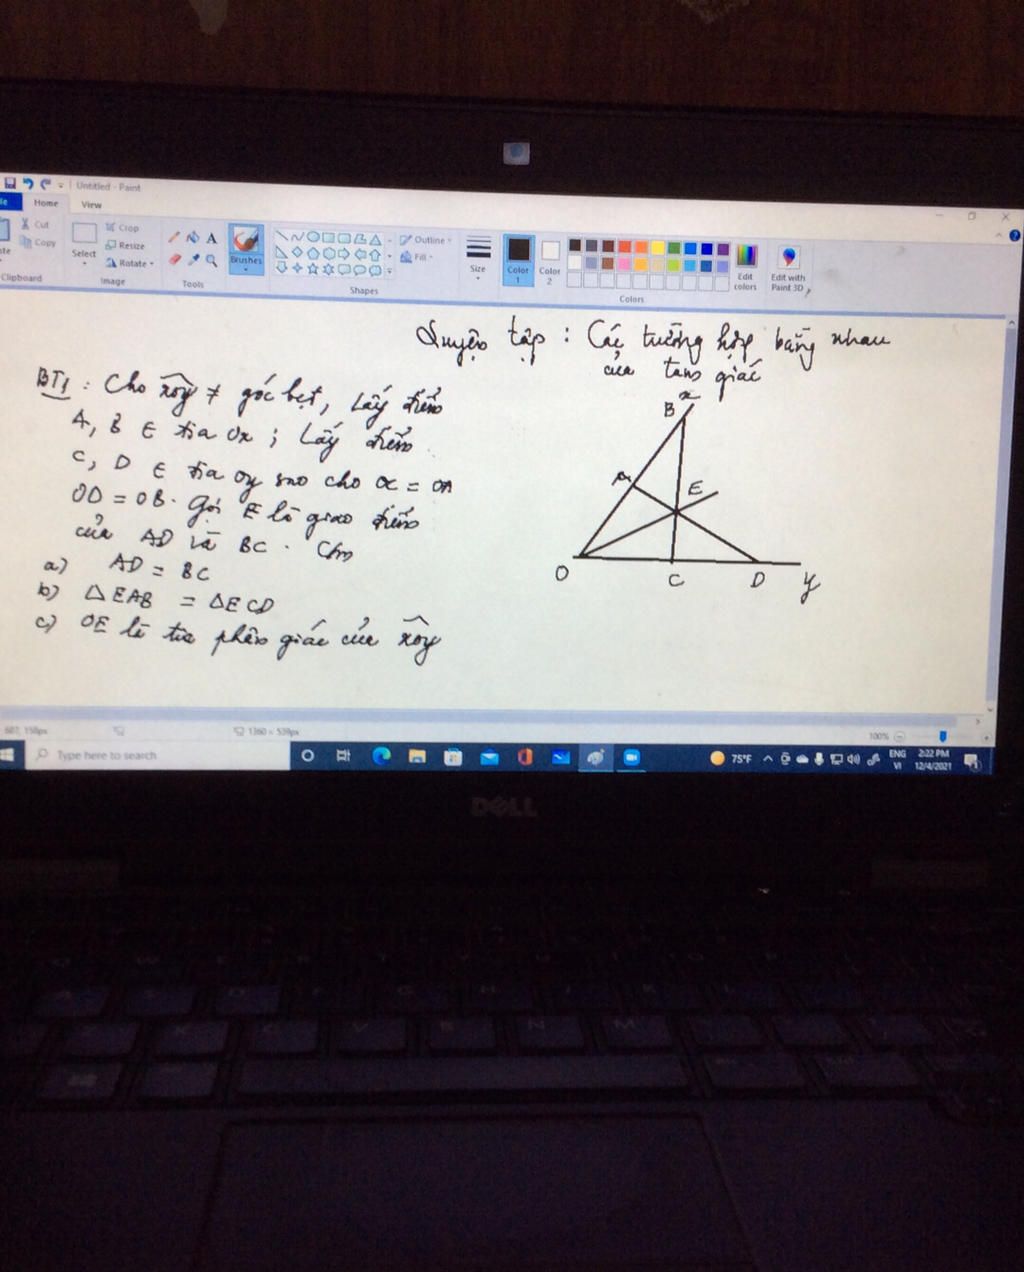 Untitled - Paint
Home
View
Cut
Copy
Clipboard
Select
Crop
Resize
Rotate
Image
Tools
Brushes
Shapes
Outline
Fill
Size
Color 1
Color 2
Colors
Edit colors
Edit with Paint 3D
Luyện tập : Các trường hợp bằng nhau
của tam giác
BT1 : Cho xOy ≠ góc bẹt, Lấy điểm
A, B ∈ tia Ox ; Lấy điểm
C, D ∈ tia Oy sao cho OC = OA
OD = OB . Gọi E là giao điểm
của AD và BC . Cm
a) AD = BC
b) △EAB = △ECD
c) OE là tia phân giác của xOy
B x
A
E
O C D y
1360 × 539px
100%
Type here to search
75°F
ENG
VI
2:22 PM
12/4/2021
DELL